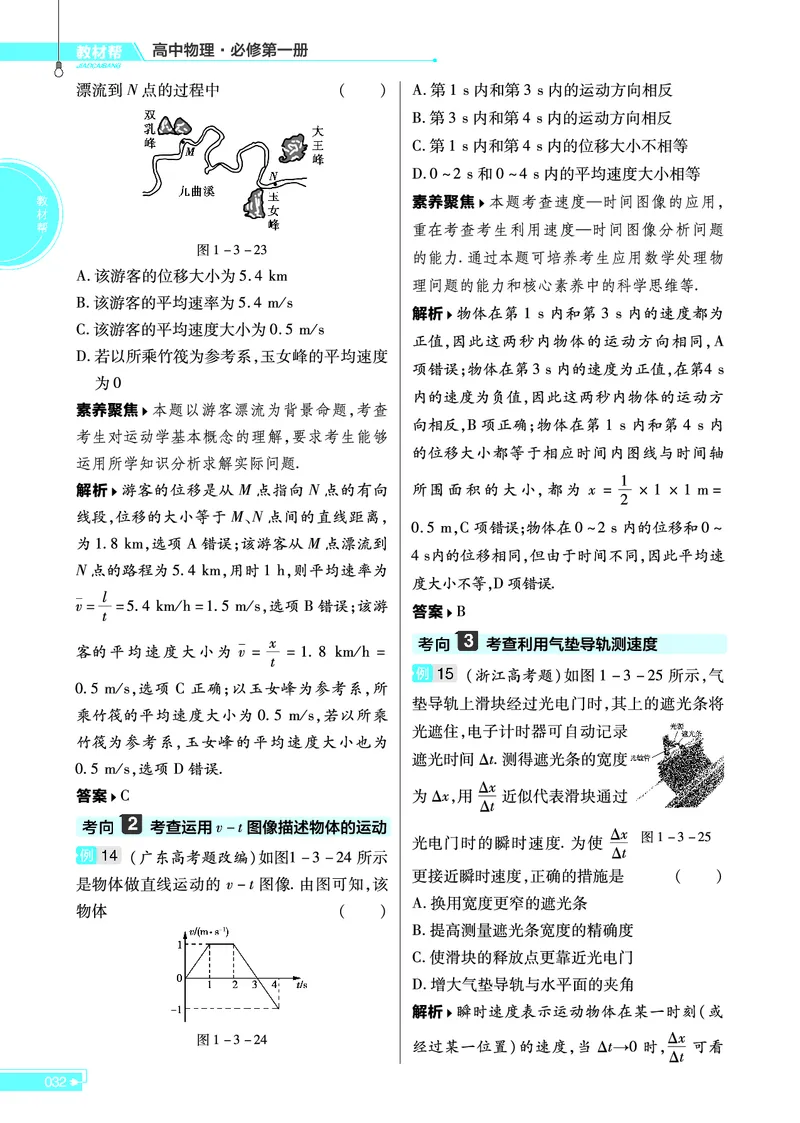 教材帮
JIAOCAIBANG
高中物理·必修第一册
教
材
帮
漂流到 N 点的过程中 ( )
双
乳
峰
M
大
王
峰
N
九曲溪
玉
女
峰
图1-3-23
A. 该游客的位移大小为5.4 km
B. 该游客的平均速率为5.4 m/s
C. 该游客的平均速度大小为0.5 m/s
D. 若以所乘竹筏为参考系,玉女峰的平均速度
为0
素养聚焦 本题以游客漂流为背景命题,考查
考生对运动学基本概念的理解,要求考生能够
运用所学知识分析求解实际问题.
解析 游客的位移是从 M 点指向 N 点的有向
线段,位移的大小等于 M、N 点间的直线距离,
为1.8 km,选项 A 错误;该游客从 M 点漂流到
N 点的路程为5.4 km,用时1 h,则平均速率为
v̄ = l/t = 5.4 km/h = 1.5 m/s,选项 B 错误;该游
客的平均速度大小为 v̄ = x/t = 1.8 km/h =
0.5 m/s,选项 C 正确;以玉女峰为参考系,所
乘竹筏的平均速度大小为0.5 m/s,若以所乘
竹筏为参考系,玉女峰的平均速度大小也为
0.5 m/s,选项 D 错误.
答案 C
考向 2 考查运用 v-t 图像描述物体的运动
例 14 (广东高考题改编)如图1-3-24 所示
是物体做直线运动的 v-t 图像. 由图可知,该
物体 ( )
v/(m·s⁻¹)
1
0
1 2 3 4 t/s
-1
图1-3-24
A. 第1 s内和第3 s内的运动方向相反
B. 第3 s内和第4 s内的运动方向相反
C. 第1 s内和第4 s内的位移大小不相等
D. 0~2 s和0~4 s内的平均速度大小相等
素养聚焦 本题考查速度—时间图像的应用,
重在考查考生利用速度—时间图像分析问题
的能力. 通过本题可培养考生应用数学处理物
理问题的能力和核心素养中的科学思维等.
解析 物体在第1 s内和第3 s内的速度都为
正值,因此这两秒内物体的运动方向相同,A
项错误;物体在第3 s内的速度为正值,在第4 s
内的速度为负值,因此这两秒内物体的运动方
向相反,B 项正确;物体在第1 s内和第4 s内
的位移大小都等于相应时间内图线与时间轴
所围面积的大小,都为 x = 1/2 × 1 × 1 m =
0.5 m,C 项错误;物体在0~2 s内的位移和0~
4 s内的位移相同,但由于时间不同,因此平均速
度大小不等,D 项错误.
答案 B
考向 3 考查利用气垫导轨测速度
例 15 (浙江高考题)如图1-3-25 所示,气
垫导轨上滑块经过光电门时,其上的遮光条将
光遮住,电子计时器可自动记录
遮光时间 Δt. 测得遮光条的宽度
为 Δx,用 Δx/Δt 近似代表滑块通过
光源
遮光条
光敏管
光电门时的瞬时速度. 为使 Δx/Δt
图1-3-25
更接近瞬时速度,正确的措施是 ( )
A. 换用宽度更窄的遮光条
B. 提高测量遮光条宽度的精确度
C. 使滑块的释放点更靠近光电门
D. 增大气垫导轨与水平面的夹角
解析 瞬时速度表示运动物体在某一时刻(或
经过某一位置)的速度,当 Δt→0 时, Δx/Δt 可看
032